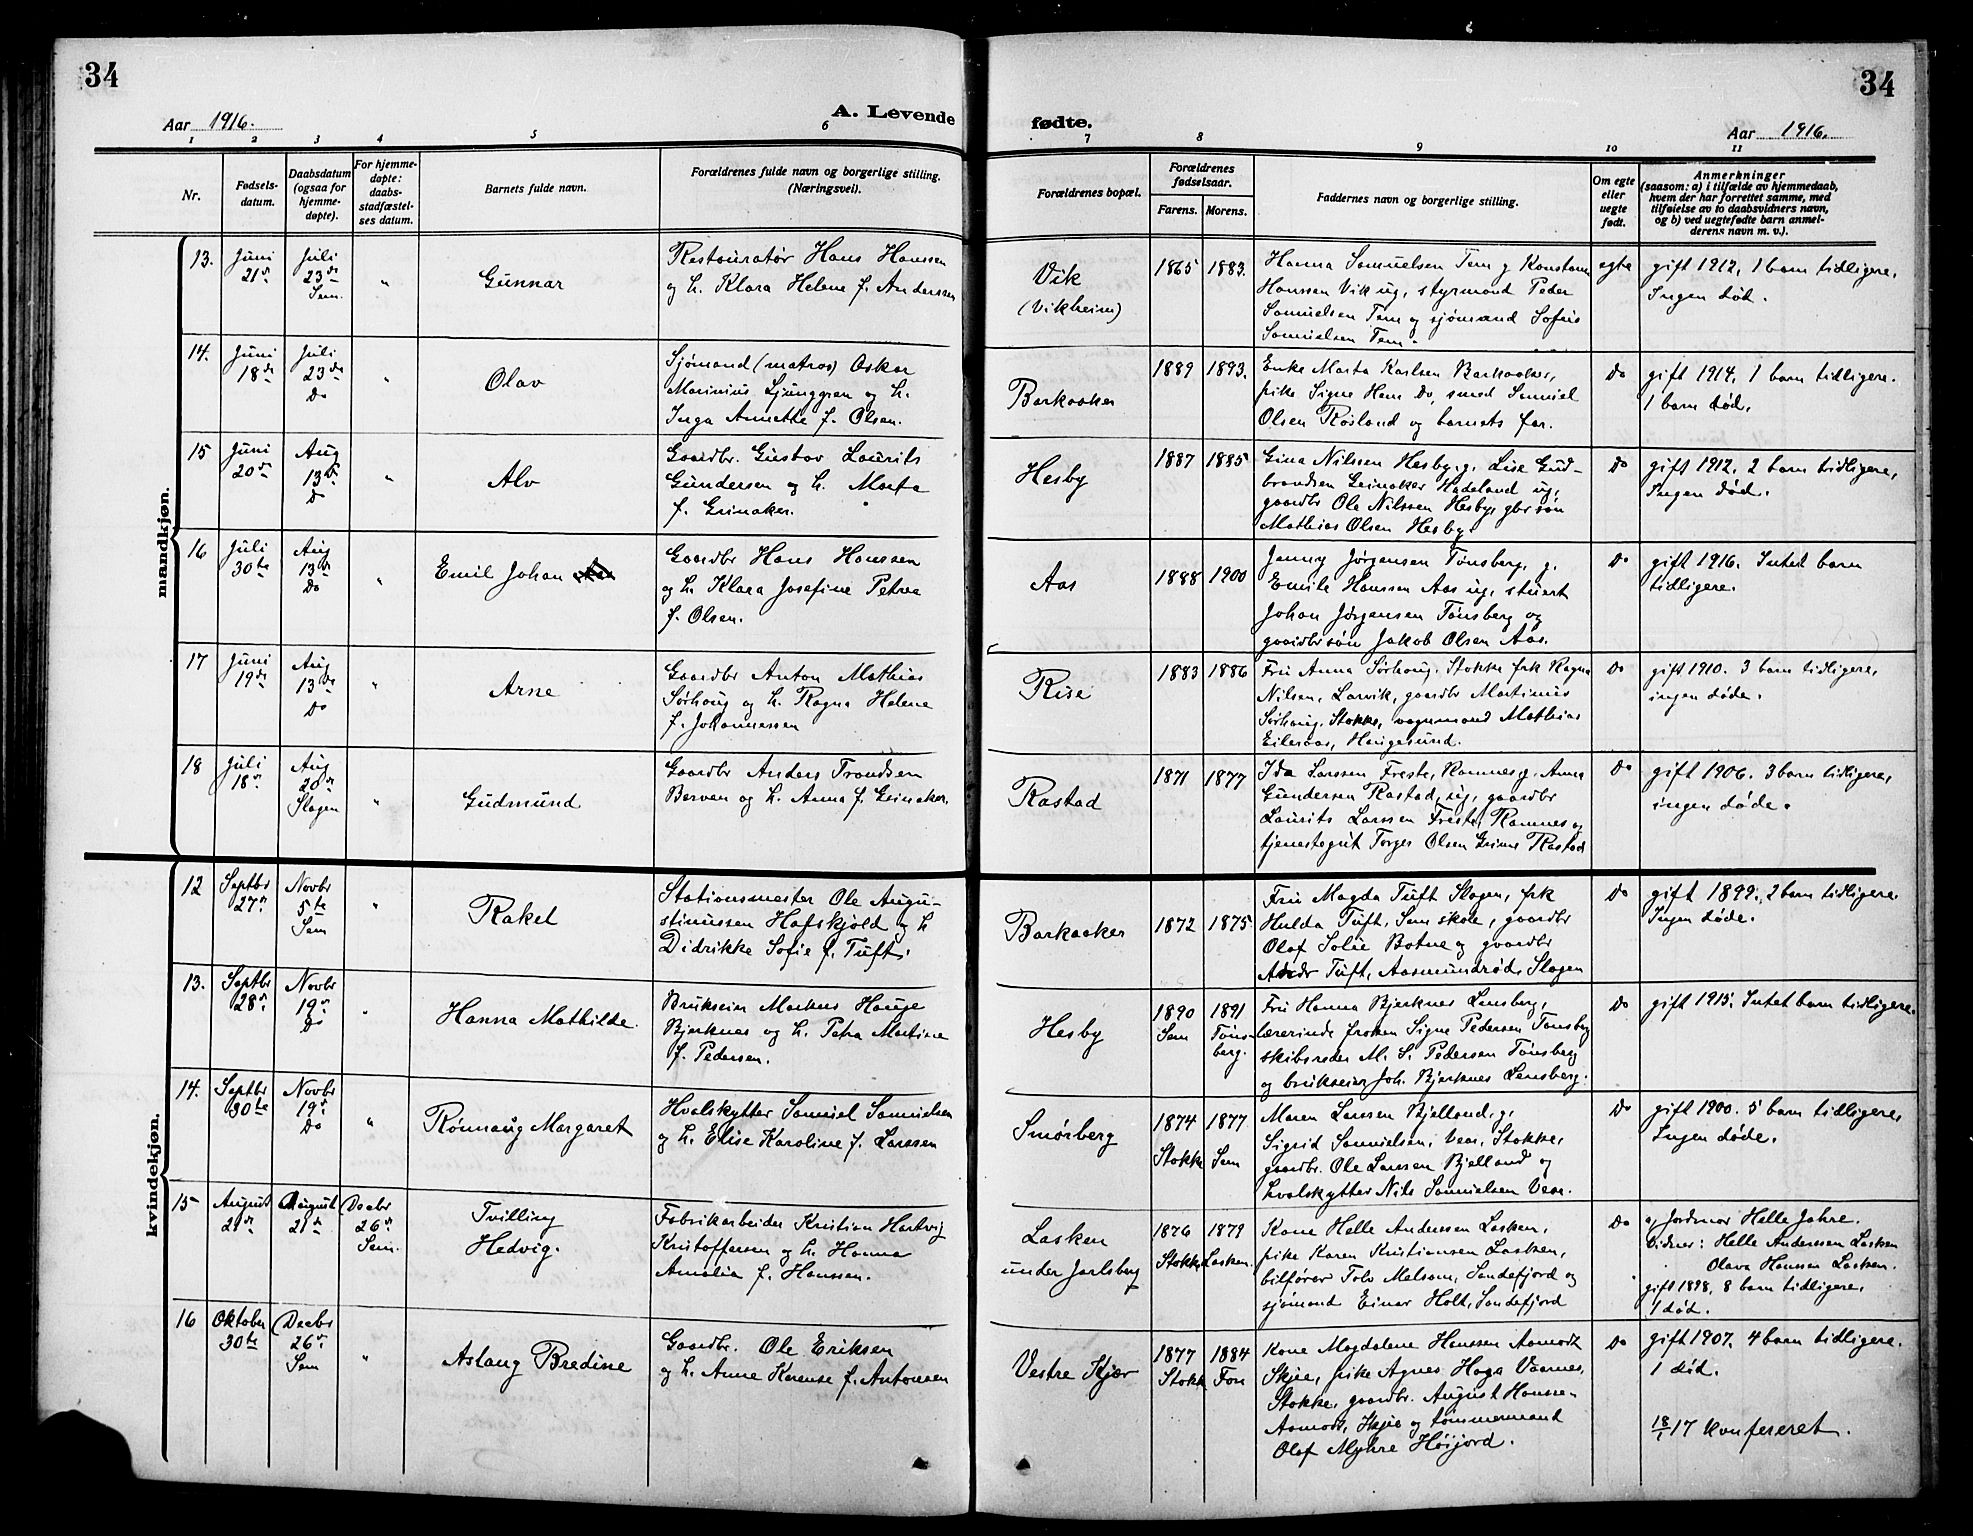 34
34
Aar 1916.
A. Levende
fødte.
Aar 1916.
1 2 3 4 5 6 7 8 9 10 11
Nr.
Fødsels-
datum.
Daabsdatum
(ogsaa for
hjemme-
døpte).
For hjemme-
døpte:
daabs-
stadfæstel-
ses datum.
Barnets fulde navn.
Forældrenes fulde navn og borgerlige stilling.
(Næringsvei).
Forældrenes bopæl.
Forældrenes
fødselsaar.
Farens. Morens.
Faddernes navn og borgerlige stilling.
Om egte
eller
uegte
født.
Anmerkninger
(saasom: a) i tilfælde av hjemmedaab,
hvem der har forrettet samme, med
tilføielse av to daabsvidners navn,
og b) ved uegtefødte barn anmel-
derens navn m. v.).
mandkjøn.
13.
Juni
21de
Juli
23de
Sem.
"
Gunnar
Restauratør Hans Hanssen
og h. Klara Helene f. Anderssen
Vik
(Vikheim)
1865 1883.
Hanna Samuelsen Tem g. Konstanse
Hanssen Vik ug, styrmand Peder
Samuelsen Tem og sjømand Sofus
Samuelsen Tem.
egte
gift 1912, 1 barn tidligere.
Ingen død.
14.
Juni
18de
Juli
23de
Do
"
Olav
Sjømand (matros) Oskar
Marinius Ljunggren og h.
Inga Annette f. Olsen.
Barkaaker
1889 1893.
Enke Marta Karlsen Barkaaker,
pike Signe Hem Do, smed Samuel
Olsen Røsland og barnets far.
Do
gift 1914, 1 barn tidligere.
1 barn død.
15
Juni
20de
Aug
13de
Do
"
Alv
Gaardbr. Gustav Laurits
Gundersen og h. Marta
f. Grinaker.
Hesby
1887 1885
Gina Nilssen Hesby g. Lise Gud-
brandsen Grinaker Hadeland ug,
gaardbr Ole Nilssen Hesby, gbr søn
Mathias Olsen Hesby.
Do
gift 1912, 2 barn tidligere,
Ingen død.
16
Juli
30te
Aug
13de
Do
"
Emil Johan
Gaardbr Hans Hanssen
og h. Klara Josefine Petrea
f. Olsen.
Aas
1888 1900
Jenny Jørgensen Tønsberg, g.
Emilie Hanssen Aas ug, stuert
Johan Jørgensen Tønsberg og
gaardbr søn Jakob Olsen Aas.
Do
gift 1916. Intet barn
tidligere.
17
Juni
19de
Aug
13de
Do
"
Arne
Gaardbr Anton Mathias
Sørhaug og h. Ragna Helene
f. Johannessen
Rise
1883 1886
Fru Anna Sørhaug. Stokke frk Ragna
Nilsen, Larvik, gaardbr Martinius
Sørhaug, Stokke, vognmand Mathias
Eilersaas, Haugesund.
Do
gift 1910. 3 barn tidligere,
ingen døde.
18
Juli
18de
Aug
20de
Slagen
"
Gudmund
Gaardbr Anders Trondsen
Berven og h. Anna f. Grinaker.
Rastad
1871 1877
Ida Larssen Freste, Ramnes g. Anna
Gundersen Rastad, ug, gaardbr
Laurits Larssen Freste, Ramnes og
tjenestegut Torger Olsen Grime Rastad
Do
gift 1906. 3 barn tidligere,
ingen døde.
kvindekjøn.
12
Septbr
27de
Novbr
5te
Sem
"
Rakel
Stationsmester Ole Augu-
stinussen Hafskjold og h
Didrikke Sofie f. Tuft.
Barkaaker
1872 1875
Fru Magda Tuft Slagen, frk
Hulda Tuft, Sem skole, gaardbr
Olaf Solie Botne og gaardbr
Tuft, Aasmundrød, Slagen
Do
gift 1899, 2 barn tidligere,
Ingen døde.
13.
Septbr
28de
Novbr
19de
Do
"
Hanna Mathilde.
Brukseier Markus Hauge
Bjerknes og h. Petra Martine
f. Pedersen.
Hesby
1890
Sem
1891
Tøns-
berg.
Fru Hanna Bjerknes Lensberg,
lærerinde frøken Signe Pedersen Tønsberg
skibsreder M. S. Pedersen Tønsberg
og brukseier Joh. Bjerknes Lensberg.
Do
gift 1915. Intet barn tidligere.
14.
Septbr
30te
Novbr
19de
Do
"
Rønnaug Margaret
Hvalskytter Samuel Samuelsen
og h. Elise Karoline f. Larssen
Smørberg
1874
Stokke
1877
Sem
Maren Larssen Bjelland, g,
Sigrid Samuelsen, Vear, Stokke,
gaardbr. Ole Larssen Bjelland og
hvalskytter Nils Samuelsen Vear.
Do
gift 1900. 5 barn tidligere,
Ingen døde.
15
August
21de
August
21de
Decbr
26de
Sem.
Tvilling
Hedvig.
Fabrikarbeider Kristian Hartvig
Kristoffersen og h. Hanna
Amalia f. Hanssen.
Lasken
under Jarlsberg
1876
Stokke
1879
Lasken.
Kone Helle Anderssen Lasken,
pike Karen Kristiansen Lasken,
bilfører Tolv Melsom, Sandefjord og
sjømand Einar Holt, Sandefjord
Do
a, Jordmor Helle Jahre.
Vidner: Helle Anderssen Lasken
Olava Hanssen Lasken.
gift 1898, 8 barn tidligere,
1 død.
16
Oktober
30te
Decbr
26de
Sem
"
Aslaug Bredine
Gaardbr. Ole Eriksen
og h. Anne Karense f. Antonsen
Vestre Skjær
1877
Stokk
1884
Fon
Kone Magdalene Hanssen Aamodt
Skjee, pike Agnes Haga Vaannes,
Stokke, gaardbr. August Hansse-
Aamodt, Skjee og tømmermand
Olaf Myhre Høijord.
Do
gift 1907. 4 barn tidligere.
1 død.
18/1 17 konfereret.